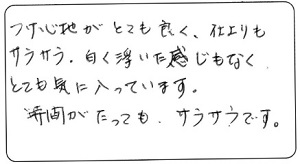 つけ心地がとても良く、仕上りも
サラサラ。白く浮いた感じもなく
とても気に入っています。
時間がたっても、サラサラです。